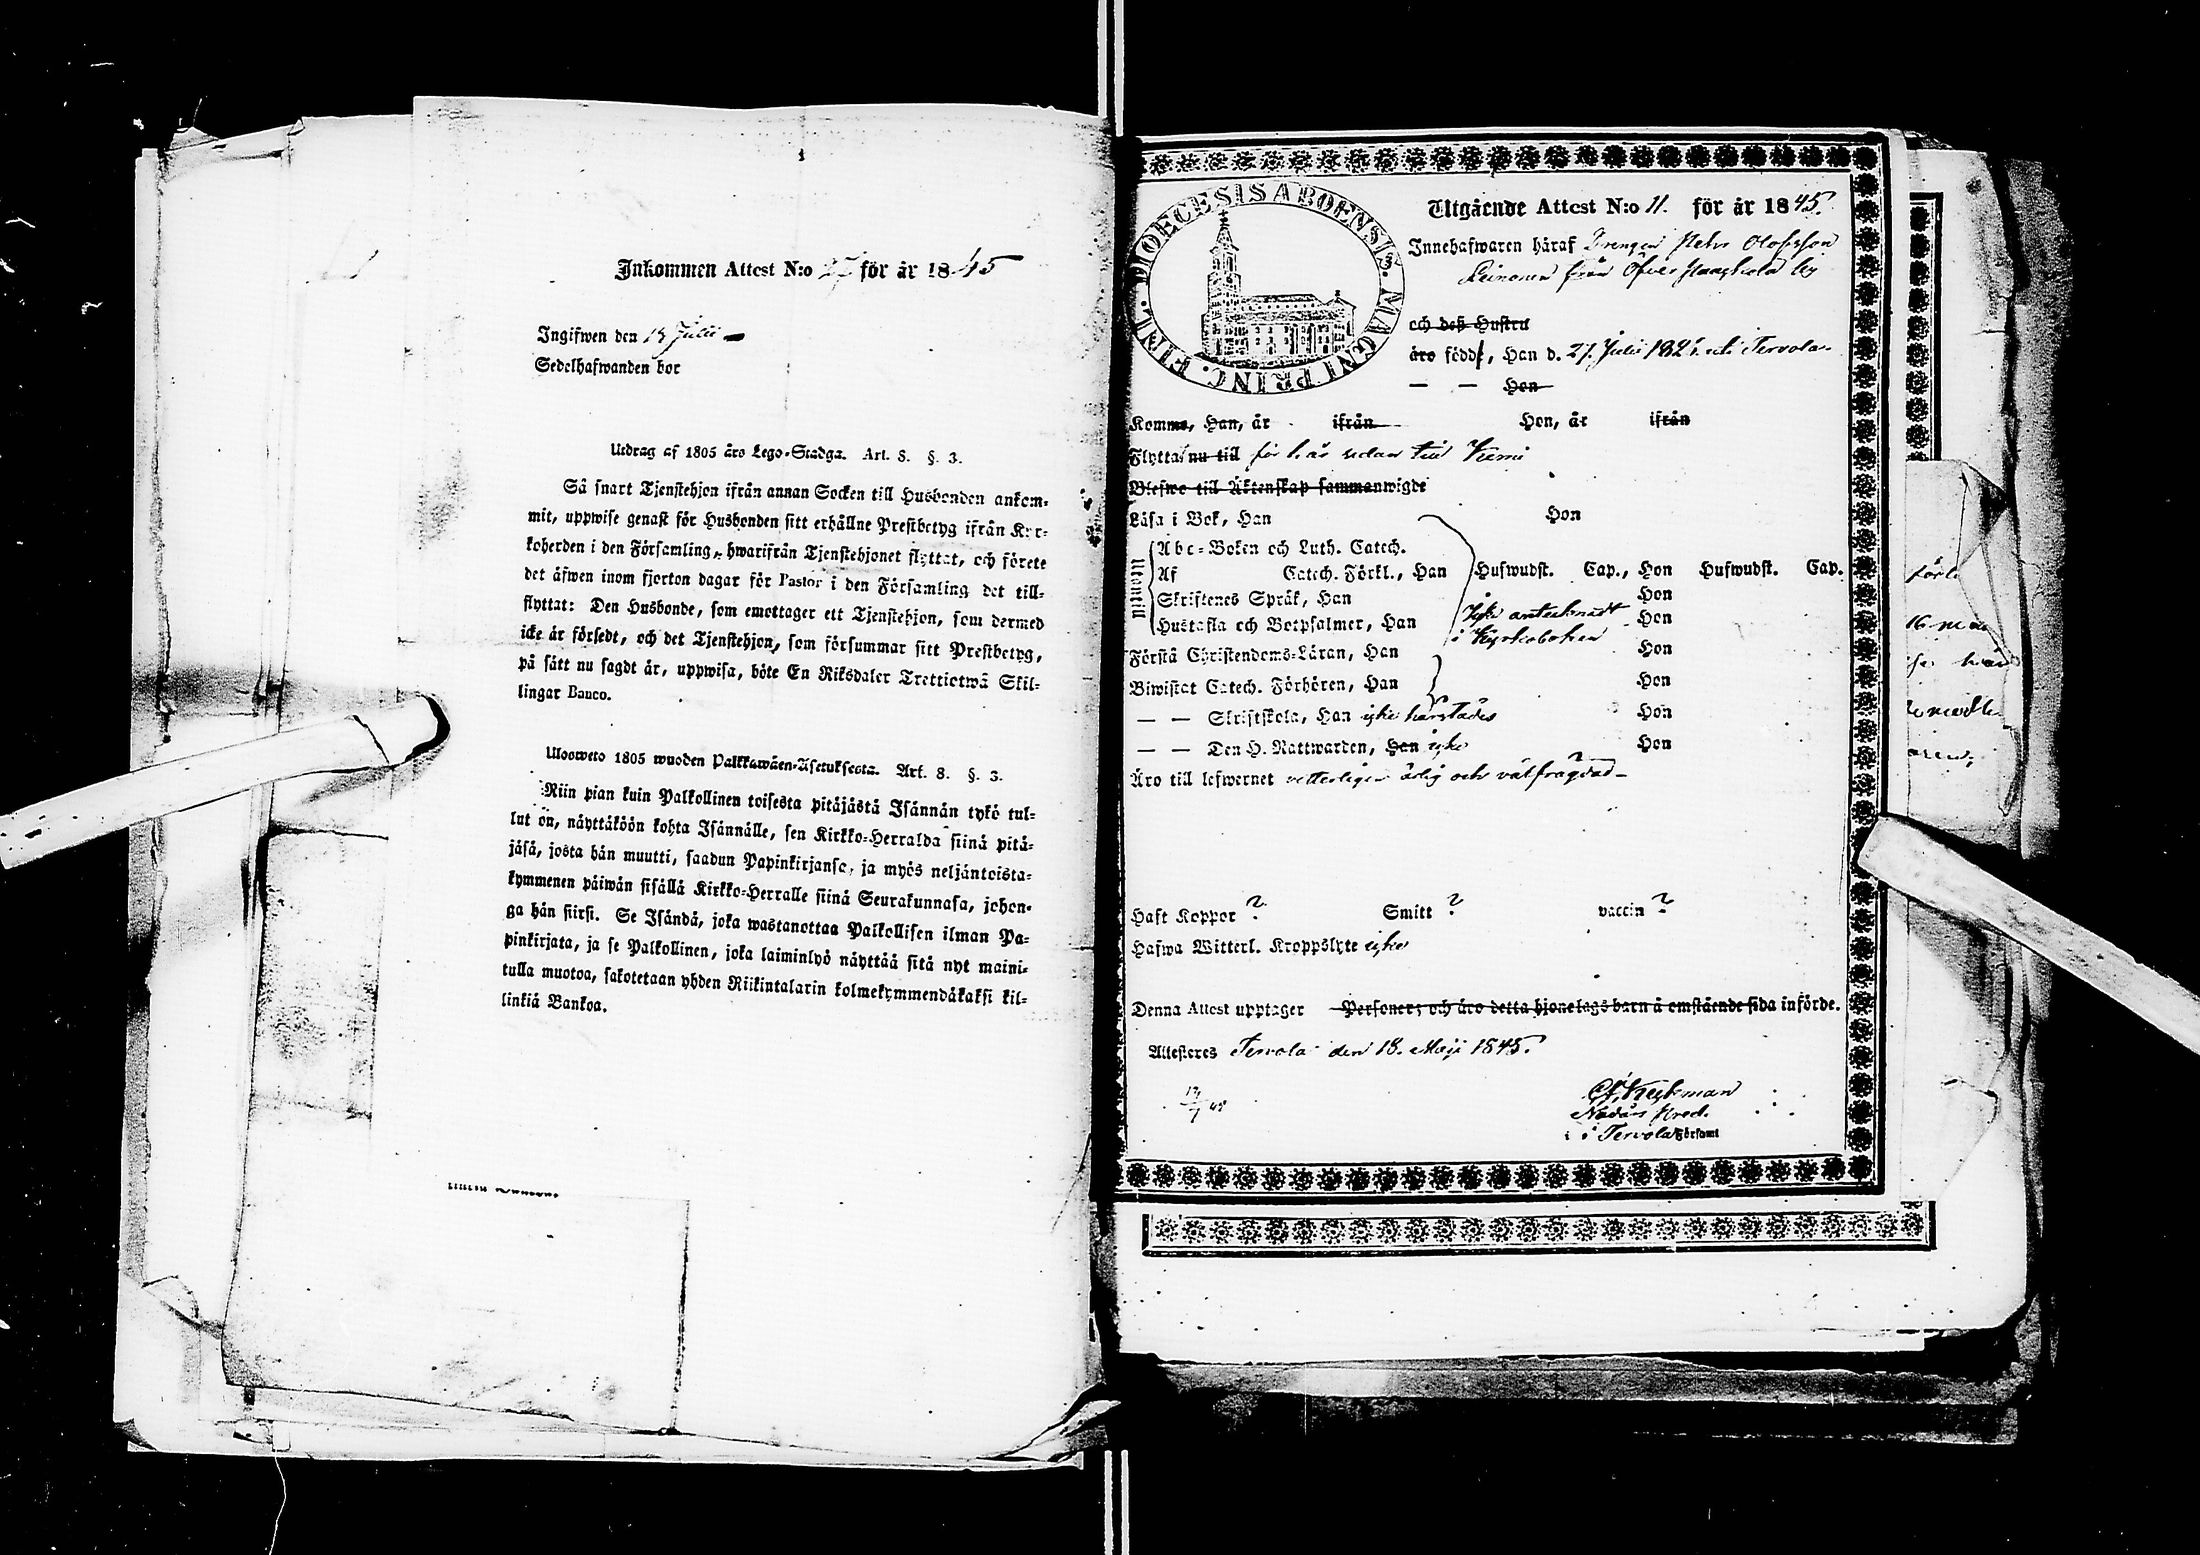 Inkommen Attest N:o för år 1845
Ingifwen den 13 Julii
Sedelhafwanden bor
Utdrag af 1805 års Lego-Stadga. Art. 8. §. 3.
Så snart Tjenstehjon ifrån annan Socken till Husbonden ankom-
mit, uppwise genast för Husbonden sitt erhållne Prestbetyg ifrån Kyr-
koherden i den Församling, hwarifrån Tjenstehjonet flyttat, och förete
det äfwen inom fjorton dagar för Pastor i den Församling det till-
flyttat: Den Husbonde, som emottager ett Tjenstehjon, som dermed
icke är försedt, och det Tjenstehjon, som försummar sitt Prestbetyg,
på sätt nu sagdt är, uppwisa, böte En Riksdaler Trettiotwå Skil-
lingar Banco.
Ulosweto 1805 wuoden Palkkawäen-Asetuksesta. Art. 8. §. 3.
Niin pian kuin Palkollinen toisesta pitäjästä Isännän tykö tul-
lut on, näyttäköön kohta Isännälle, sen Kirkko-Herralda siinä pitä-
jäsä, josta hän muutti, saadun Papinkirjanse, ja myös neljäntoista-
kymmenen päiwän sisällä Kirkko-Herralle siinä Seurakunnasa, johon-
ga hän siirsi. Se Isändä, joka wastanottaa Palkollisen ilman Pa-
pinkirjata, ja se Palkollinen, joka laiminlyö näyttää sitä nyt maini-
tulla muotoa, sakotetaan yhden Riikintalarin kolmekymmendäkaksi kil-
linkiä Bankoa.
DIOECESIS ABOENSIS. MAGNI PRINC. FINL.
Utgående Attest N:o 11. för år 1845.
Innehafwaren häraf Drengen Petr Olofsson
Leinonen från Öfver Paakkola by
och deß Hustru
äro födde, Han d. 27 Julii 182 i Tervola.
— — Hon
Komme, Han, år ifrån Hon, år ifrån
Flytta nu till för h är sedan till Kemi
Blefwo till Äktenskap sammanwigde
Läsa i Bok, Han Hon
Utantill
Abc-Boken och Luth. Catech.
Af Catech. Förkl., Han Hufwudst. Cap., Hon Hufwudst. Cap.
Skriftenes Språk, Han Hon
Hustafla och Botpsalmer, Han icke antecknadt Hon
i Kyrkoboken
Förstå Christendoms-Läran, Han Hon
Biwistat Catech. Förhören, Han Hon
— — Skriftskola, Han icke härstädes Hon
— — Den H. Nattwarden, Han icke Hon
Äro till lefwernet vetterligen ärlig och välfrägdad
Haft Koppor ? Smitt ? vaccin ?
Hafwa Witterl. Kroppslyte icke
Denna Attest upptager Personer; och äro detta hjonelags barn å omstående sida införde.
Attesteres Tervola den 18. Maji 1845.
Heykman
Nådårs Pred.
i Tervola Församl